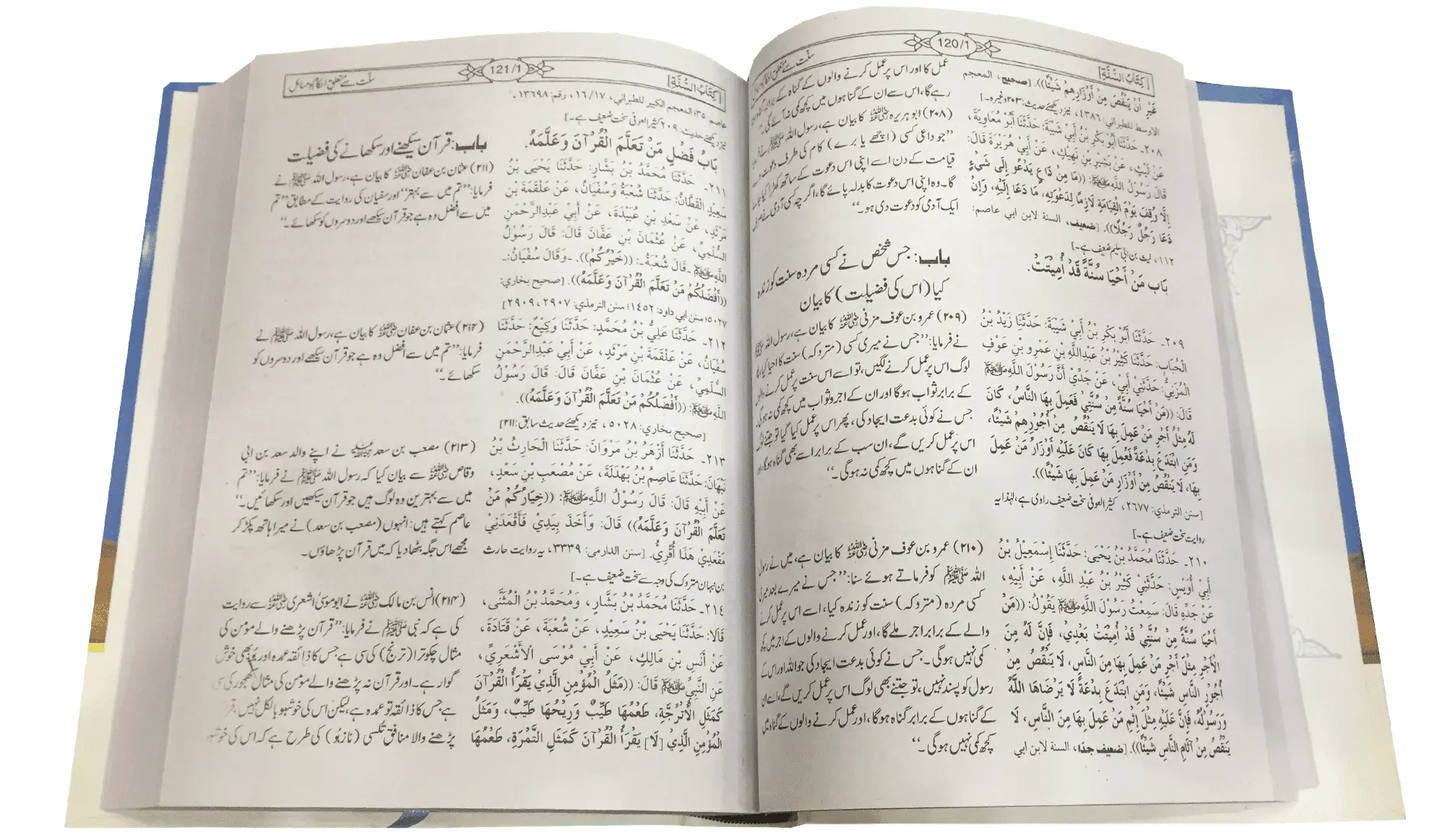 كتاب السنة
120/1
سنت سے متعلق احکام و مسائل
غَيْرِ أَنْ يَنْقُصَ مِنْ أَوْزَارِهِمْ شَيْئًا)). [صحيح، المعجم
الاوسط للطبراني: ٤٣٨٦، نیز دیکھئے حدیث: ٢٠٣ وغیرہ۔]
٢٠٨۔ حَدَّثَنَا أَبُو بَكْرِ بْنُ أَبِي شَيْبَةَ: حَدَّثَنَا أَبُو مُعَاوِيَةَ،
عَنْ لَيْثٍ، عَنْ بَشِيرِ بْنِ نَهِيكٍ، عَنْ أَبِي هُرَيْرَةَ قَالَ:
قَالَ رَسُولُ اللَّهِ ﷺ: ((مَا مِنْ دَاعٍ يَدْعُو إِلَى شَيْءٍ
إِلَّا وُقِفَ يَوْمَ الْقِيَامَةِ لَازِمًا لِدَعْوَتِهِ، مَا دَعَا إِلَيْهِ، وَإِنْ
دَعَا رَجُلٌ رَجُلًا)). [ضعيف، السنة لابن ابي عاصم:
١١٢، لیث بن ابی سلیم ضعیف ہے۔]
بَابُ مَنْ أَحْيَا سُنَّةً قَدْ أُمِيتَتْ.
٢٠٩۔ حَدَّثَنَا أَبُو بَكْرِ بْنُ أَبِي شَيْبَةَ: حَدَّثَنَا زَيْدُ بْنُ
الْحُبَابِ: حَدَّثَنَا كَثِيرُ بْنُ عَبْدِاللَّهِ بْنِ عَمْرِو بْنِ عَوْفٍ
الْمُزَنِيُّ: حَدَّثَنِي أَبِي، عَنْ جَدِّي أَنَّ رَسُولَ اللَّهِ ﷺ
قَالَ: ((مَنْ أَحْيَا سُنَّةً مِنْ سُنَّتِي فَعَمِلَ بِهَا النَّاسُ، كَانَ
لَهُ مِثْلُ أَجْرِ مَنْ عَمِلَ بِهَا لَا يَنْقُصُ مِنْ أُجُورِهِمْ شَيْئًا،
وَمَنِ ابْتَدَعَ بِدْعَةً فَعُمِلَ بِهَا كَانَ عَلَيْهِ أَوْزَارُ مَنْ عَمِلَ
بِهَا، لَا يَنْقُصُ مِنْ أَوْزَارِ مَنْ عَمِلَ بِهَا شَيْئًا)).
[سنن الترمذي: ٢٦٧٧، کثیر العوفی سخت ضعیف راوی ہے، لہٰذا یہ
روایت سخت ضعیف ہے۔]
٢١٠۔ حَدَّثَنَا مُحَمَّدُ بْنُ يَحْيَى: حَدَّثَنَا إِسْمَعِيلُ بْنُ
أَبِي أُوَيْسٍ: حَدَّثَنِي كَثِيرُ بْنُ عَبْدِ اللَّهِ، عَنْ أَبِيهِ،
عَنْ جَدِّهِ قَالَ: سَمِعْتُ رَسُولَ اللَّهِ ﷺ يَقُولُ: ((مَنْ
أَحْيَا سُنَّةً مِنْ سُنَّتِي قَدْ أُمِيتَتْ بَعْدِي، فَإِنَّ لَهُ مِنَ
الْأَجْرِ مِثْلَ أَجْرِ مَنْ عَمِلَ بِهَا مِنَ النَّاسِ، لَا يَنْقُصُ مِنْ
أُجُورِ النَّاسِ شَيْئًا، وَمَنِ ابْتَدَعَ بِدْعَةً لَا يَرْضَاهَا اللَّهُ
وَرَسُولُهُ، فَإِنَّ عَلَيْهِ مِثْلَ إِثْمِ مَنْ عَمِلَ بِهَا مِنَ النَّاسِ، لَا
يَنْقُصُ مِنْ آثَامِ النَّاسِ شَيْئًا)). [ضعيف جدًا، السنة لابن ابي
عمل کا اور اس پر عمل کرنے والوں کے گناہ کے برابر
رہے گا، اس سے ان کے گناہوں میں کچھ کمی نہ آئے گی۔‘‘
(٢٠٨) ابو ہریرہ رضی اللہ عنہ کا بیان ہے، رسول اللہ ﷺ نے
’’جو داعی کسی (اچھے یا برے) کام کی طرف دعوت
قیامت کے دن اسے اپنی اس دعوت کے ساتھ کھڑا کیا جائے
گا۔ وہ اپنی اس دعوت کا بدلہ پائے گا، اگر چہ کسی آدمی نے صرف
ایک آدمی کو دعوت دی ہو۔‘‘
باب: جس شخص نے کسی مردہ سنت کو زندہ
کیا (اس کی فضیلت) کا بیان
(٢٠٩) عمرو بن عوف مزنی رضی اللہ عنہ کا بیان ہے، رسول اللہ ﷺ
نے فرمایا: ’’جس نے میری کسی (متروکہ) سنت کا احیا کیا،
لوگ اس پر عمل کرنے لگیں، تو اسے اس سنت پر عمل کرنے والوں
کے برابر ثواب ہوگا اور ان کے اجر و ثواب میں کچھ کمی نہ ہوگی۔
جس نے کوئی بدعت ایجاد کی، پھر اس پر عمل کیا گیا تو جتنے لوگ
اس پر عمل کریں گے، ان سب کے برابر اسے بھی گناہ ہوگا، اور
ان کے گناہوں میں کچھ کمی نہ ہوگی۔‘‘
(٢١٠) عمرو بن عوف مزنی رضی اللہ عنہ کا بیان ہے، میں نے رسول
اللہ ﷺ کو فرماتے ہوئے سنا: ’’جس نے میرے بعد میری
کسی مردہ (متروکہ) سنت کو زندہ کیا، اسے اس پر عمل کرنے
والے کے برابر اجر ملے گا، اور عمل کرنے والوں کے اجر میں کچھ
کمی نہیں ہوگی۔ جس نے کوئی بدعت ایجاد کی جو اللہ اور اس کے
رسول کو پسند نہیں، تو جتنے بھی لوگ اس پر عمل کریں گے، اسے ان
کے گناہوں کے برابر گناہ ہوگا، اور عمل کرنے والوں کے گناہ میں
کچھ کمی نہیں ہوگی۔‘‘
كتاب السنة
121/1
سنت سے متعلق احکام و مسائل
عاصم: ٣٥؛ المعجم الكبير للطبراني، ١٦/١٧، رقم: ١٣٦٩٨،
نیز دیکھئے حدیث: ٢٠٩، کثیر العوفی سخت ضعیف ہے۔]
بَابُ فَضْلِ مَنْ تَعَلَّمَ الْقُرْآنَ وَعَلَّمَهُ.
٢١١۔ حَدَّثَنَا مُحَمَّدُ بْنُ بَشَّارٍ: حَدَّثَنَا يَحْيَى بْنُ
سَعِيدٍ الْقَطَّانُ: حَدَّثَنَا شُعْبَةُ وَسُفْيَانُ، عَنْ عَلْقَمَةَ بْنِ
مَرْثَدٍ، عَنْ سَعْدِ بْنِ عُبَيْدَةَ، عَنْ أَبِي عَبْدِالرَّحْمَنِ
السُّلَمِيِّ، عَنْ عُثْمَانَ بْنِ عَفَّانَ قَالَ: قَالَ رَسُولُ
اللَّهِ ﷺ ۔قَالَ شُعْبَةُ۔: ((خَيْرُكُمْ)). ۔وَقَالَ سُفْيَانُ:۔
((أَفْضَلُكُمْ مَنْ تَعَلَّمَ الْقُرْآنَ وَعَلَّمَهُ)). [صحيح بخاري:
٥٠٢٧؛ سنن ابي داود: ١٤٥٢؛ سنن الترمذي: ٢٩٠٧، ٢٩٠٩]
٢١٢۔ حَدَّثَنَا عَلِيُّ بْنُ مُحَمَّدٍ: حَدَّثَنَا وَكِيعٌ: حَدَّثَنَا
سُفْيَانُ، عَنْ عَلْقَمَةَ بْنِ مَرْثَدٍ، عَنْ أَبِي عَبْدِالرَّحْمَنِ
السُّلَمِيِّ، عَنْ عُثْمَانَ بْنِ عَفَّانَ قَالَ: قَالَ رَسُولُ
اللَّهِ ﷺ: ((أَفْضَلُكُمْ مَنْ تَعَلَّمَ الْقُرْآنَ وَعَلَّمَهُ)).
[صحيح بخاري: ٥٠٢٨، نیز دیکھئے حدیث سابق: ٢١١]
٢١٣۔ حَدَّثَنَا أَزْهَرُ بْنُ مَرْوَانَ: حَدَّثَنَا الْحَارِثُ بْنُ
نَبْهَانَ: حَدَّثَنَا عَاصِمُ بْنُ بَهْدَلَةَ، عَنْ مُصْعَبِ بْنِ سَعْدٍ،
عَنْ أَبِيهِ قَالَ: قَالَ رَسُولُ اللَّهِ ﷺ: ((خِيَارُكُمْ مَنْ
تَعَلَّمَ الْقُرْآنَ وَعَلَّمَهُ)) قَالَ: وَأَخَذَ بِيَدِي فَأَقْعَدَنِي
مَقْعَدِي هَذَا أُقْرِئُ. [سنن الدارمی: ٣٣٣٩، یہ روایت حارث
بن نبہان متروک کی وجہ سے سخت ضعیف ہے۔]
٢١٤۔ حَدَّثَنَا مُحَمَّدُ بْنُ بَشَّارٍ، وَمُحَمَّدُ بْنُ الْمُثَنَّى،
قَالَا: حَدَّثَنَا يَحْيَى بْنُ سَعِيدٍ، عَنْ شُعْبَةَ، عَنْ قَتَادَةَ،
عَنْ أَنَسِ بْنِ مَالِكٍ، عَنْ أَبِي مُوسَى الْأَشْعَرِيِّ،
عَنِ النَّبِيِّ ﷺ قَالَ: ((مَثَلُ الْمُؤْمِنِ الَّذِي يَقْرَأُ الْقُرْآنَ
كَمَثَلِ الْأُتْرُجَّةِ، طَعْمُهَا طَيِّبٌ وَرِيحُهَا طَيِّبٌ، وَمَثَلُ
الْمُؤْمِنِ الَّذِي [لَا] يَقْرَأُ الْقُرْآنَ كَمَثَلِ التَّمْرَةِ، طَعْمُهَا
باب: قرآن سیکھنے اور سکھانے کی فضیلت
(٢١١) عثمان بن عفان رضی اللہ عنہ کا بیان ہے، رسول اللہ ﷺ نے
فرمایا: ’’تم میں سے بہتر‘‘ اور سفیان کی روایت کے مطابق ’’تم
میں سے افضل وہ ہے جو قرآن سیکھے اور دوسروں کو سکھائے۔‘‘
(٢١٢) عثمان بن عفان رضی اللہ عنہ کا بیان ہے، رسول اللہ ﷺ نے
فرمایا: ’’تم میں سے افضل وہ ہے جو قرآن سیکھے اور دوسروں کو
سکھائے۔‘‘
(٢١٣) مصعب بن سعد رحمہ اللہ نے اپنے والد سعد بن ابی
وقاص رضی اللہ عنہ سے بیان کیا کہ رسول اللہ ﷺ نے فرمایا: ’’تم
میں سے بہترین وہ لوگ ہیں جو قرآن سیکھیں اور سکھائیں۔‘‘
عاصم کہتے ہیں: انہوں (مصعب بن سعد) نے میرا ہاتھ پکڑ کر
مجھے اس جگہ بٹھا دیا کہ میں قرآن پڑھاؤں۔
(٢١٤) انس بن مالک رضی اللہ عنہ نے ابو موسیٰ اشعری رضی اللہ عنہ سے روایت
کی ہے کہ نبی ﷺ نے فرمایا: ’’قرآن پڑھنے والے مومن کی
مثال چکوترا (ترنج) کی سی ہے جس کا ذائقہ عمدہ اور بو بھی خوش
گوار ہے۔ اور قرآن نہ پڑھنے والے مومن کی مثال کھجور کی سی
ہے جس کا ذائقہ تو عمدہ ہے، لیکن اس کی خوشبو بالکل نہیں،
پڑھنے والا منافق تلسی (نازبُو) کی طرح ہے کہ اس کی خوشبو